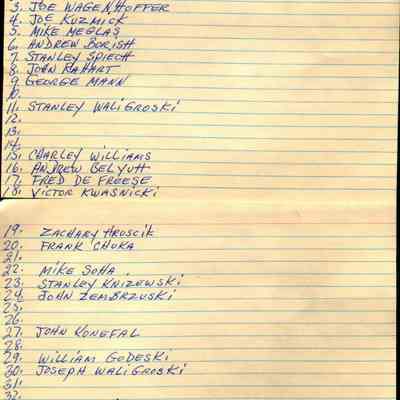 3. JOE WAGENHOFFER
4. JOE KUZMICK
5. MIKE MEGLAS
6. ANDREW BORISH
7. STANLEY SPIECH
8. JOHN RAHART
9. GEORGE MANN
10.
11. STANLEY WALIGROSKI
12.
13.
14.
15. CHARLEY WILLIAMS
16. ANDREW BELYUTT
17. FRED DE FREESE
18. VICTOR KWASNICKI
19. ZACHARY HRUSCIK
20. FRANK CHUKA
21.
22. MIKE SOHA
23. STANLEY KNIZEWSKI
24. JOHN ZEMBRZUSKI
25.
26.
27. JOHN KONEFAL
28.
29. WILLIAM GODESKI
30. JOSEPH WALIGROSKI
31.
32.